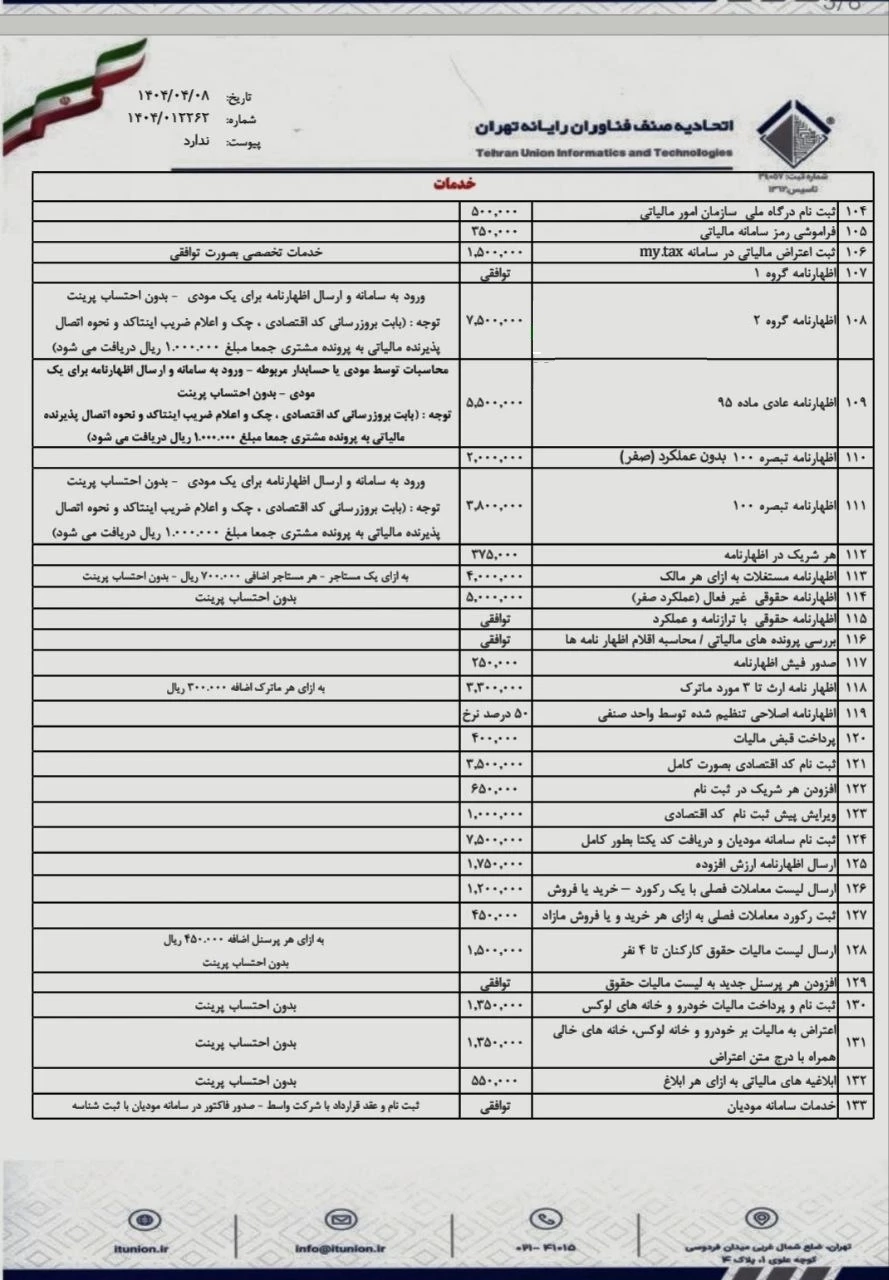 3/8
تاریخ: ۱۴۰۴/۰۴/۰۸
شماره: ۱۴۰۴/۰۱۲۲۶۲
پیوست: ندارد
اتحادیه صنف فناوران رایانه تهران
Tehran Union Informatics and Technologies
شماره ثبت: ۳۹۰۵۷
تاسیس: ۱۳۶۲
خدمات
۱۰۴ ثبت نام درگاه ملی سازمان امور مالیاتی ۵۰۰,۰۰۰
۱۰۵ فراموشی رمز سامانه مالیاتی ۳۵۰,۰۰۰
۱۰۶ ثبت اعتراض مالیاتی در سامانه my.tax ۱,۵۰۰,۰۰۰ خدمات تخصصی بصورت توافقی
۱۰۷ اظهارنامه گروه ۱ توافقی
۱۰۸ اظهارنامه گروه ۲ ۷,۵۰۰,۰۰۰ ورود به سامانه و ارسال اظهارنامه برای یک مودی - بدون احتساب پرینت
توجه : (بابت بروزرسانی کد اقتصادی ، چک و اعلام ضریب اینتاکد و نحوه اتصال
پذیرنده مالیاتی به پرونده مشتری جمعا مبلغ ۱.۰۰۰.۰۰۰ ریال دریافت می شود)
۱۰۹ اظهارنامه عادی ماده ۹۵ ۵,۵۰۰,۰۰۰ محاسبات توسط مودی یا حسابدار مربوطه - ورود به سامانه و ارسال اظهارنامه برای یک
مودی - بدون احتساب پرینت
توجه : (بابت بروزرسانی کد اقتصادی ، چک و اعلام ضریب اینتاکد و نحوه اتصال پذیرنده
مالیاتی به پرونده مشتری جمعا مبلغ ۱.۰۰۰.۰۰۰ ریال دریافت می شود)
۱۱۰ اظهارنامه تبصره ۱۰۰ بدون عملکرد (صفر) ۲,۰۰۰,۰۰۰
۱۱۱ اظهارنامه تبصره ۱۰۰ ۳,۸۰۰,۰۰۰ ورود به سامانه و ارسال اظهارنامه برای یک مودی - بدون احتساب پرینت
توجه : (بابت بروزرسانی کد اقتصادی ، چک و اعلام ضریب اینتاکد و نحوه اتصال
پذیرنده مالیاتی به پرونده مشتری جمعا مبلغ ۱.۰۰۰.۰۰۰ ریال دریافت می شود)
۱۱۲ هر شریک در اظهارنامه ۳۷۵,۰۰۰
۱۱۳ اظهارنامه مستغلات به ازای هر مالک ۴,۰۰۰,۰۰۰ به ازای یک مستاجر - هر مستاجر اضافی ۷۰۰.۰۰۰ ریال - بدون احتساب پرینت
۱۱۴ اظهارنامه حقوقی غیر فعال (عملکرد صفر) ۵,۰۰۰,۰۰۰ بدون احتساب پرینت
۱۱۵ اظهارنامه حقوقی با ترازنامه و عملکرد توافقی
۱۱۶ بررسی پرونده های مالیاتی / محاسبه اقلام اظهار نامه ها توافقی
۱۱۷ صدور فیش اظهارنامه ۲۵۰,۰۰۰
۱۱۸ اظهار نامه ارث تا ۳ مورد ماترک ۳,۳۰۰,۰۰۰ به ازای هر ماترک اضافه ۳۰۰.۰۰۰ ریال
۱۱۹ اظهارنامه اصلاحی تنظیم شده توسط واحد صنفی ۵۰ درصد نرخ
۱۲۰ پرداخت قبض مالیات ۴۰۰,۰۰۰
۱۲۱ ثبت نام کد اقتصادی بصورت کامل ۳,۵۰۰,۰۰۰
۱۲۲ افزودن هر شریک در ثبت نام ۶۵۰,۰۰۰
۱۲۳ ویرایش پیش ثبت نام کد اقتصادی ۱,۰۰۰,۰۰۰
۱۲۴ ثبت نام سامانه مودیان و دریافت کد یکتا بطور کامل ۷,۵۰۰,۰۰۰
۱۲۵ ارسال اظهارنامه ارزش افزوده ۱,۷۵۰,۰۰۰
۱۲۶ ارسال لیست معاملات فصلی با یک رکورد – خرید یا فروش ۱,۲۰۰,۰۰۰
۱۲۷ ثبت رکورد معاملات فصلی به ازای هر خرید و یا فروش مازاد ۴۵۰,۰۰۰
۱۲۸ ارسال لیست مالیات حقوق کارکنان تا ۴ نفر ۱,۵۰۰,۰۰۰ به ازای هر پرسنل اضافه ۴۵۰.۰۰۰ ریال
بدون احتساب پرینت
۱۲۹ افزودن هر پرسنل جدید به لیست مالیات حقوق توافقی
۱۳۰ ثبت نام و پرداخت مالیات خودرو و خانه های لوکس ۱,۳۵۰,۰۰۰ بدون احتساب پرینت
۱۳۱ اعتراض به مالیات بر خودرو و خانه لوکس، خانه های خالی
همراه با درج متن اعتراض ۱,۳۵۰,۰۰۰ بدون احتساب پرینت
۱۳۲ ابلاغیه های مالیاتی به ازای هر ابلاغ ۵۵۰,۰۰۰ بدون احتساب پرینت
۱۳۳ خدمات سامانه مودیان توافقی ثبت نام و عقد قرارداد با شرکت واسط - صدور فاکتور در سامانه مودیان با ثبت شناسه
تهران، ضلع شمال غربی میدان فردوسی
کوچه علوی ۱، پلاک ۴
۰۲۱- ۴۱۰۱۵
info@itunion.ir
itunion.ir